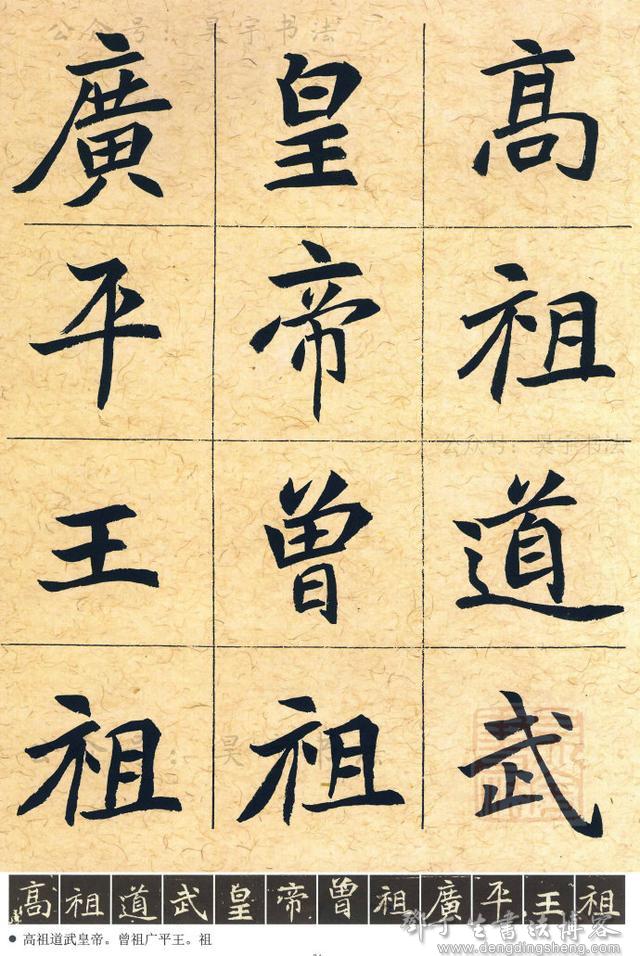 公众号：昊宇书法
高祖道武
皇帝曾祖
廣平王祖
公众号：昊宇书法
公众号：昊宇书法
高祖道武皇帝曾祖廣平王祖
● 高祖道武皇帝。曾祖广平王。祖
邓丁生書法博客
www.dengdingsheng.com